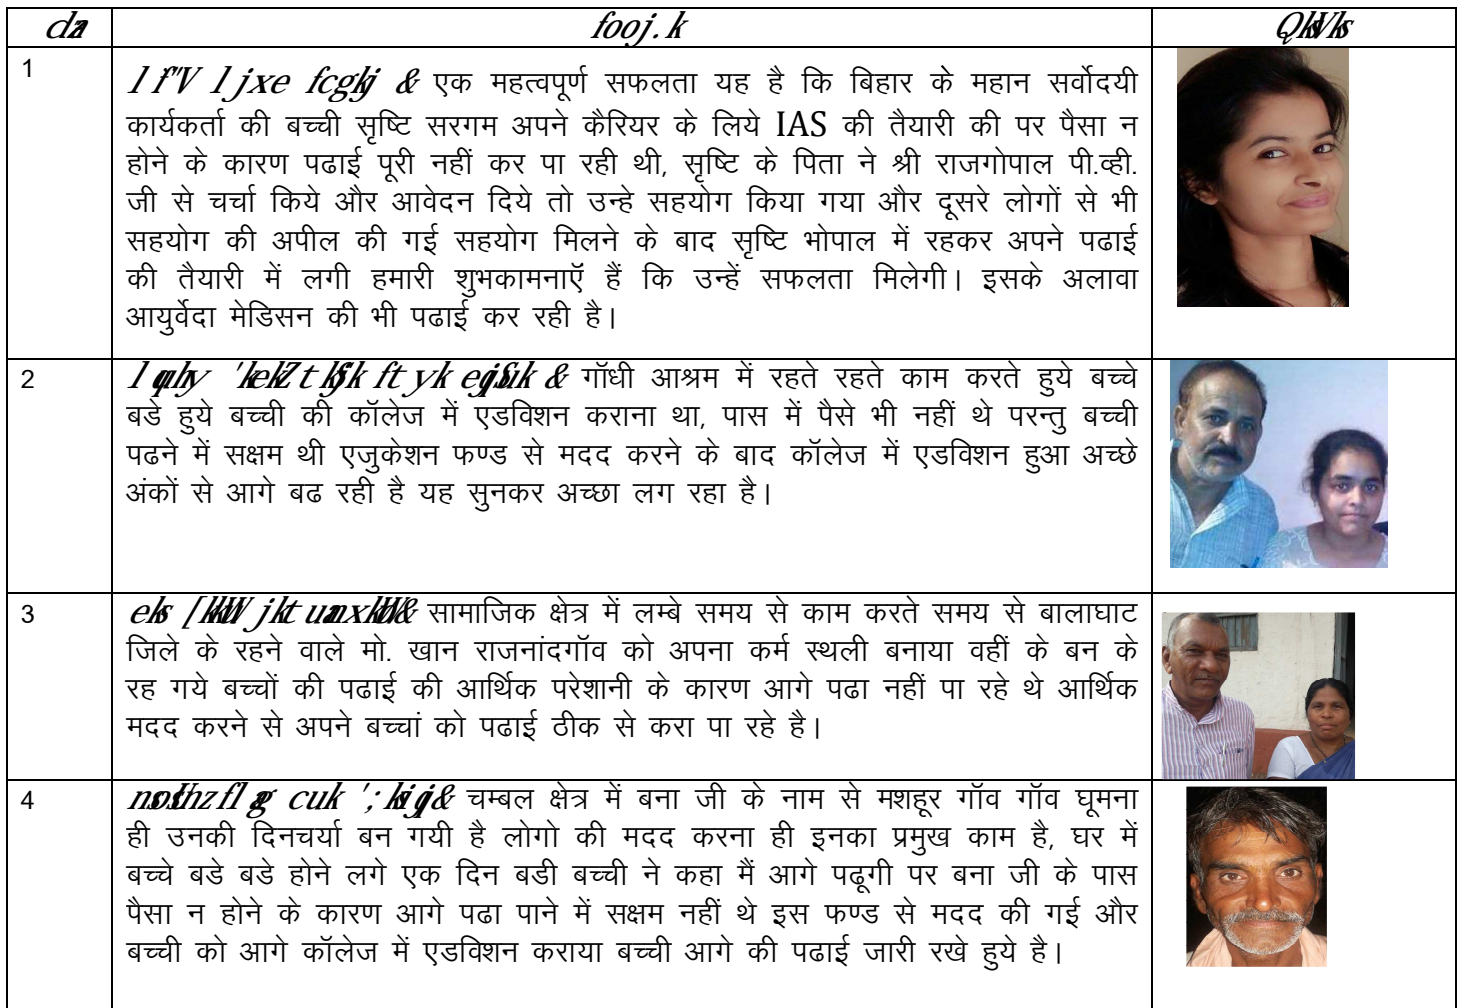 fooj.k
1
एक महत्वपूर्ण सफलता यह है कि बिहार के महान सर्वोदयी
कार्यकर्ता की बच्ची सृष्टि सरगम अपने कैरियर के लिये IAS की तैयारी की पर पैसा न
होने के कारण पढाई पूरी नहीं कर पा रही थी, सृष्टि के पिता ने श्री राजगोपाल पी.व्ही.
जी से चर्चा किये और आवेदन दिये तो उन्हे सहयोग किया गया और दूसरे लोगों से भी
सहयोग की अपील की गई सहयोग मिलने के बाद सृष्टि भोपाल में रहकर अपने पढाई
की तैयारी में लगी हमारी शुभकामनाऍ हैं कि उन्हें सफलता मिलेगी। इसके अलावा
आयुर्वेदा मेडिसन की भी पढाई कर रही है।
2
गॉधी आश्रम में रहते रहते काम करते हुये बच्चे
बडे हुये बच्ची की कॉलेज में एडविशन कराना था, पास में पैसे भी नहीं थे परन्तु बच्ची
पढने में सक्षम थी एजुकेशन फण्ड से मदद करने के बाद कॉलेज में एडविशन हुआ अच्छे
अंकों से आगे बढ रही है यह सुनकर अच्छा लग रहा है।
3
सामाजिक क्षेत्र में लम्बे समय से काम करते समय से बालाघाट
जिले के रहने वाले मो. खान राजनांदगॉव को अपना कर्म स्थली बनाया वहीं के बन के
रह गये बच्चों की पढाई की आर्थिक परेशानी के कारण आगे पढा नहीं पा रहे थे आर्थिक
मदद करने से अपने बच्चां को पढाई ठीक से करा पा रहे है।
4
चम्बल क्षेत्र में बना जी के नाम से मशहूर गॉव गॉव घूमना
ही उनकी दिनचर्या बन गयी है लोगो की मदद करना ही इनका प्रमुख काम है, घर में
बच्चे बडे बडे होने लगे एक दिन बडी बच्ची ने कहा मैं आगे पढूगी पर बना जी के पास
पैसा न होने के कारण आगे पढा पाने में सक्षम नहीं थे इस फण्ड से मदद की गई और
बच्ची को आगे कॉलेज में एडविशन कराया बच्ची आगे की पढाई जारी रखे हुये है।